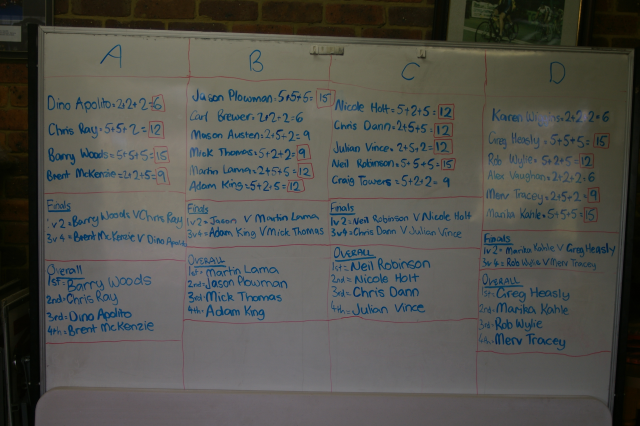 A
Dino Apolito = 2+2+2=6
Chris Ray = 5+5+2 = 12
Barry Woods = 5+5+5 = 15
Brent McKenzie = 2+2+5 = 9
Finals
1v2 = Barry Woods V Chris Ray
3v4 = Brent McKenzie V Dino Apolito
Overall
1st = Barry Woods
2nd = Chris Ray
3rd = Dino Apolito
4th = Brent McKenzie
B
Jason Plowman = 5+5+5 = 15
Carl Brewer = 2+2+2 = 6
Mason Austen = 2+5+2 = 9
Mick Thomas = 5+2+2 = 9
Martin Lama = 2+5+5 = 12
Adam King = 5+2+5 = 12
Finals
1v2 = Jason V Martin Lama
3v4 = Adam King V Mick Thomas
OVERALL
1st = Martin Lama
2nd = Jason Plowman
3rd = Mick Thomas
4th = Adam King
C
Nicole Holt = 5+2+5 = 12
Chris Dann = 2+5+5 = 12
Julian Vince = 2+5+2 = 12
Neil Robinson = 5+5+5 = 15
Craig Towers = 5+2+2 = 9
Finals
1v2 = Neil Robinson V Nicole Holt
3v4 = Chris Dann V Julian Vince
OVERALL
1st = Neil Robinson
2nd = Nicole Holt
3rd = Chris Dann
4th = Julian Vince
D
Karen = 2+2+2=6
Greg Heasly = 5+5+5 = 15
Rob Wylie = 5+2+5 = 12
Alex Vaughan = 2+2+2 = 6
Merv Tracey = 2+5+2 = 9
Marika Kahle = 5+5+5 = 15
Finals
1v2 = Marika Kahle V Greg Heasly
3v4 = Rob Wylie V Merv Tracey
OVERALL
1st = Greg Heasly
2nd = Marika Kahle
3rd = Rob Wylie
4th = Merv Tracey